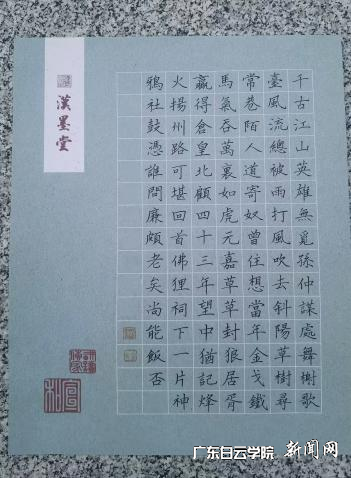 千古江山英雄無覓孫仲謀處舞榭歌
臺風流總被雨打風吹去斜陽草樹尋
常巷陌人道寄奴曾住想當年金戈鐵
馬氣吞萬裏如虎元嘉草草封狼居胥
贏得倉皇北顧四十三年望中猶記烽
火揚州路可堪回首佛狸祠下一片神
鴉社鼓憑誰問廉頗老矣尚能飯否
漢墨堂
广东白云学院 新闻网